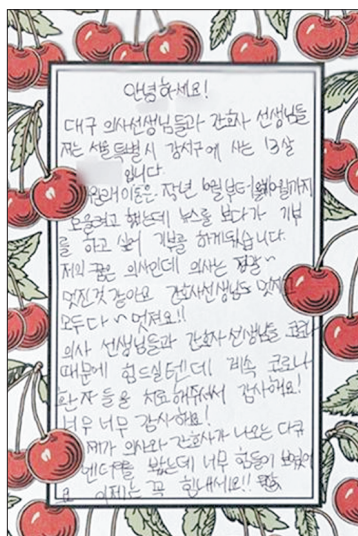 안녕하세요!
대구 의사선생님들과 간호사 선생님들
저는 서울특별시 강서구에 사는 13살
입니다.
원래 이돈은 작년 6월부터 까지
모을려고 했는데 뉴스를 보다가 기부
를 하고 싶어 기부를 하게됬습니다.
저의 꿈은 의사인데 의사는 정말~
멋진것 같아요 간호사선생님도 멋지고
모두다~ 멋져요!!
의사 선생님들과 간호사 선생님들 코로나
때문에 힘드실텐데 계속 코로나
환자들을 치료해주셔서 감사해요!
너무 너무 감사해요!
제가 의사와 간호사가 나오는 다큐
멘터리를 봤는데 너무 힘들어 보였어
요 이제는 꼭 힘내세요!!